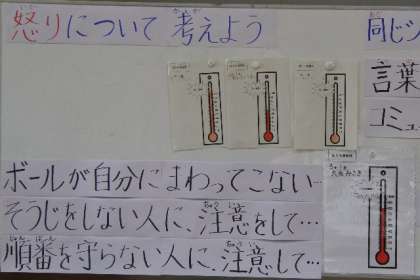 怒りについて考えよう
同じ
言葉
コミュ
ボールが自分にまわってこない…
そうじをしない人に、注意をして…
順番を守らない人に、注意して…